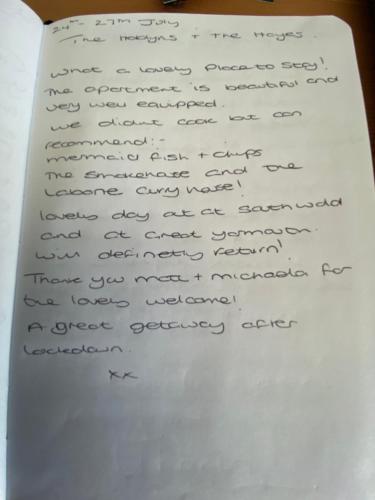 24th - 27th July
The Hodyns + The Hayes.
What a lovely place to stay!
The apartment is beautiful and
very well equipped.
We didnt cook but can
recommend:-
mermaid fish + chips
The Smokehouse and the
Labone Curry house!
lovely day out at Southwold
and at Great Yarmouth.
Will definetly return!
Thank you Matt + Michaela for
the lovely welcome!
A great getaway after
lockdown.
xx